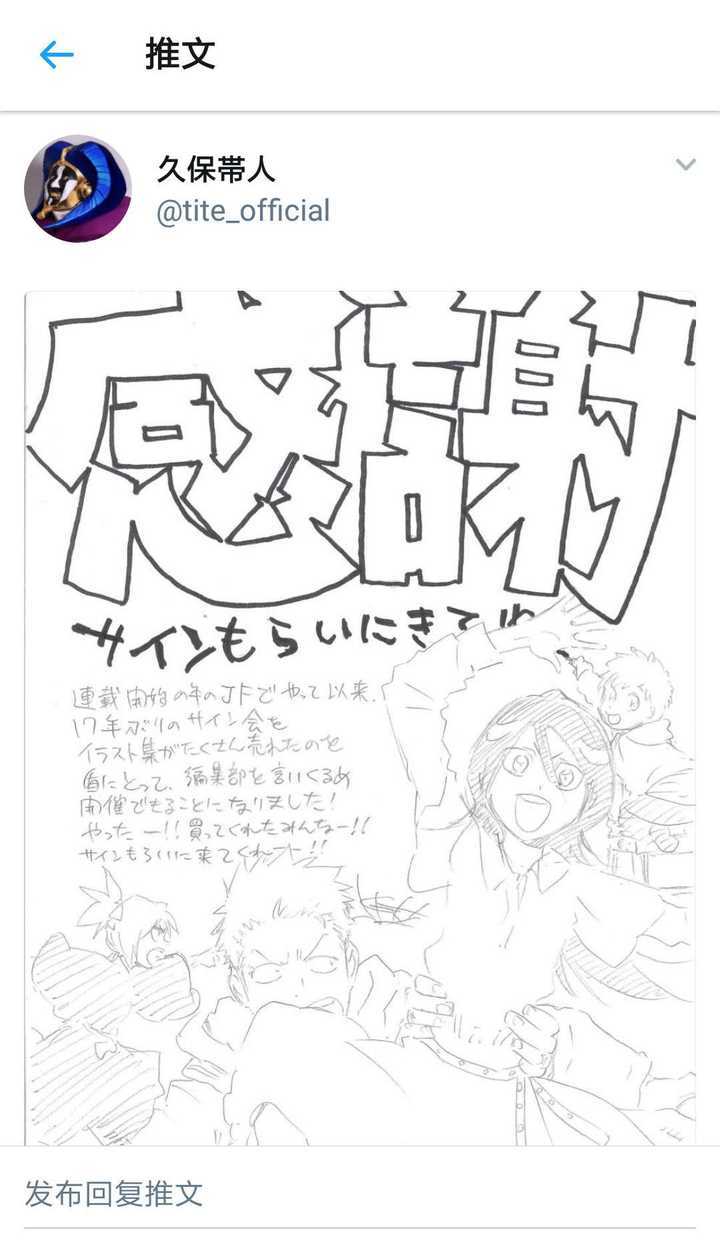 推文
久保帯人
@tite_official
感謝
サインもらいにきてね
連載開始の年のJFでやって以来、
17年ぶりのサイン会を
イラスト集がたくさん売れたのを
盾にとって、編集部を言いくるめ
開催できることになりました!
やったー!!買ってくれたみんなー!!
サインもらいに来てくれーッ!!
发布回复推文